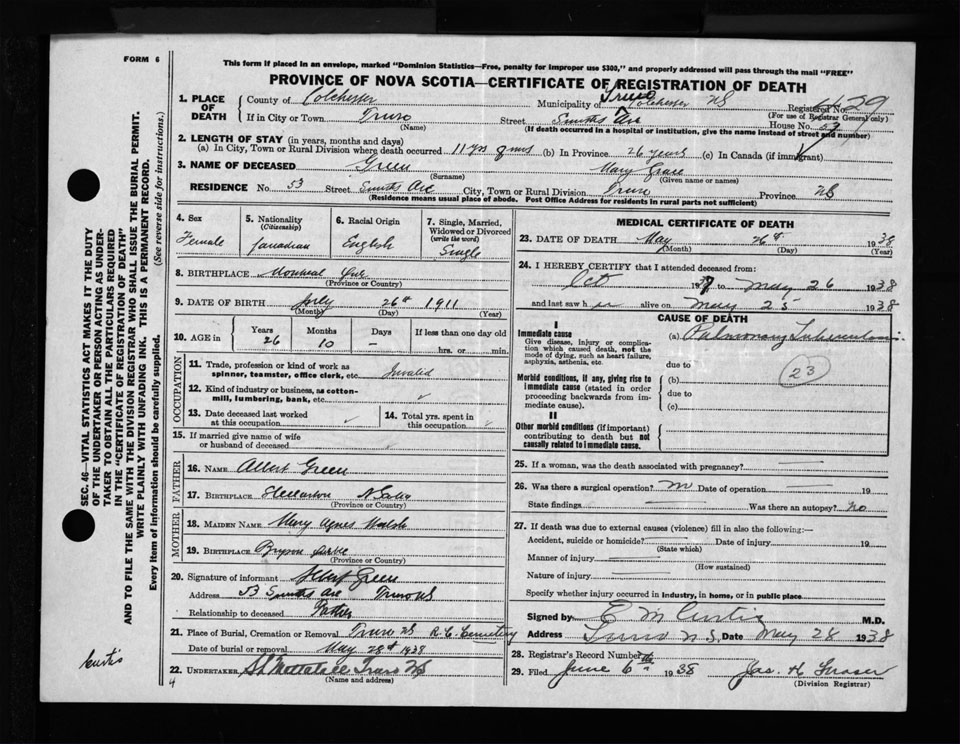 FORM 6
This form if placed in an envelope, marked "Dominion Statistics—Free, penalty for improper use $300," and properly addressed will pass through the mail "FREE"
PROVINCE OF NOVA SCOTIA—CERTIFICATE OF REGISTRATION OF DEATH
1. PLACE OF DEATH County of Colchester Municipality of Truro Colchester NS Registered No. 29
(For use of Registrar General only)
If in City or Town Truro Street Smiths Ave House No. 53
(Name) (If death occurred in a hospital or institution, give the name instead of street and number)
2. LENGTH OF STAY (in years, months and days)
(a) In City, Town or Rural Division where death occurred 11 yrs (b) In Province 26 years (c) In Canada (if immigrant)
3. NAME OF DECEASED Green Mary Grace
(Surname) (Given name or names)
RESIDENCE No. 53 Street Smiths Ave City, Town or Rural Division Truro Province NS
(Residence means usual place of abode. Post Office Address for residents in rural parts not sufficient)
4. Sex Female
5. Nationality (Citizenship) Canadian
6. Racial Origin English
7. Single, Married, Widowed or Divorced (write the word) Single
8. BIRTHPLACE Montreal Que
(Province or Country)
9. DATE OF BIRTH July 26th 1911
(Month) (Day) (Year)
10. AGE in Years 26 Months 10 Days — If less than one day old
hrs. or min.
OCCUPATION
11. Trade, profession or kind of work as spinner, teamster, office clerk, etc. Invalid
12. Kind of industry or business, as cotton-mill, lumbering, bank, etc.
13. Date deceased last worked at this occupation
14. Total yrs. spent in this occupation
15. If married give name of wife or husband of deceased
FATHER
16. NAME Albert Green
17. BIRTHPLACE Stellarton N Scotia
(Province or Country)
MOTHER
18. MAIDEN NAME Mary Agnes Walsh
19. BIRTHPLACE Bryson
(Province or Country)
20. Signature of informant Albert Green
Address 53 Smiths Ave Truro NS
Relationship to deceased Father
21. Place of Burial, Cremation or Removal Truro NS R. C. Cemetery
Date of burial or removal May 28th 1938
22. UNDERTAKER Truro NS
(Name and address)
MEDICAL CERTIFICATE OF DEATH
23. DATE OF DEATH May 26th 1938
(Month) (Day) (Year)
24. I HEREBY CERTIFY that I attended deceased from:
Oct 1937 to May 26 1938
and last saw her alive on May 25 1938
CAUSE OF DEATH
I
Immediate cause
Give disease, injury or complication which caused death, not the mode of dying, such as heart failure, asphyxia, asthenia, etc.
(a) Pulmonary Tuberculosis
due to
23
Morbid conditions, if any, giving rise to immediate cause (stated in order proceeding backwards from immediate cause).
(b)
due to
(c)
II
Other morbid conditions (if important) contributing to death but not causally related to immediate cause.
25. If a woman, was the death associated with pregnancy?
26. Was there a surgical operation? no Date of operation 19
State findings Was there an autopsy? no
27. If death was due to external causes (violence) fill in also the following:—
Accident, suicide or homicide? Date of injury 19
(State which)
Manner of injury
(How sustained)
Nature of injury
Specify whether injury occurred in Industry, in home, or in public place
Signed by E M Curtis M.D.
Address Truro N.S. Date May 28 1938
28. Registrar's Record Number
29. Filed June 6th 1938 Jas. H Fraser
(Division Registrar)
SEC. 46—VITAL STATISTICS ACT MAKES IT THE DUTY
OF THE UNDERTAKER OR PERSON ACTING AS UNDER-
TAKER TO OBTAIN ALL THE PARTICULARS REQUIRED
IN THE "CERTIFICATE OF REGISTRATION OF DEATH"
AND TO FILE THE SAME WITH THE DIVISION REGISTRAR WHO SHALL ISSUE THE BURIAL PERMIT.
WRITE PLAINLY WITH UNFADING INK. THIS IS A PERMANENT RECORD.
Every item of information should be carefully supplied. (See reverse side for instructions.)
Curtis
4